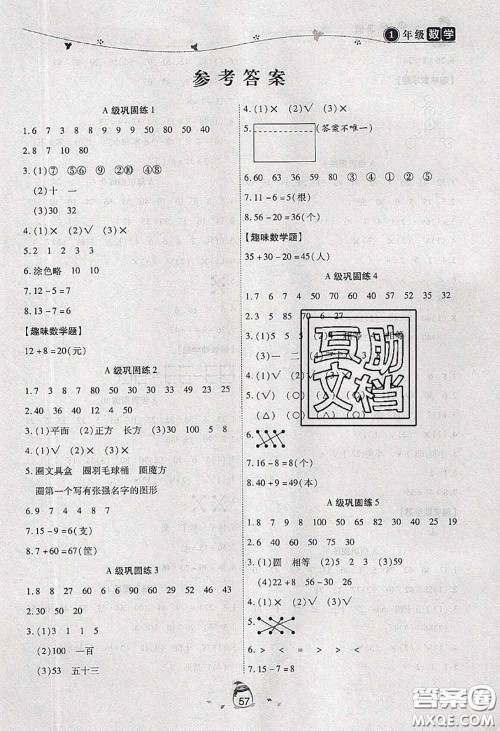 1年级数学
参考答案
A级巩固练1
1.6 7 3 8 9 8 9 9 80 50 40
2.8 7 10 80
3.(1)⑦ ⑤⑥ ⑨ ②⑩ ④⑧
(2)十 一
(3)30 32
4.(1)× (2)√ (3)×
5.2 1 2 3 3
6.涂色略 10 10
7.12-5=7
8.13-5=8
【趣味数学题】
12+8=20(元)
A级巩固练2
1.7 3 8 7 80 50 30 30 33 49 23 25
2.36 40 40 12 30 10
3.(1)平面 (2)正方 长方 (3)100 5 8
4.(1)√ (2)× (3)√
5.圈文具盒 圈羽毛球桶 圈魔方
圈第一个写有张强名字的图形
7.15-9=6(支)
8.7+60=67(筐)
A级巩固练3
1.8 8 27 60 6 90 30 29 52 46 43
2.30 50 20 8
3.(1)3 1 1 5
(2)100 一百
(3)53 五十三
4.(1)× (2)√ (3)× (4)×
5.(答案不唯一)
6.60 63 36 59 80 ③ ④ ① ② ⑤
7.11-6=5(根)
8.56-20=36(个)
【趣味数学题】
35+30-20=45(人)
A级巩固练4
1.7 6 4 70 37 70 50 50 51 87 9
2.3 5 85 70 6 27
3.(1)5 5
(3)一 二
4.(1)×
5.(△)
(○)
6.
7.16-8=8(个)
8.
A级巩固练5
1.8 7 9 4 90 32 30 40 40 25 19
2.
3.(1)圆 相等 (2)3 (3)59
(4)22+6 56-30 26
4.(1)× (2)√ (3)√
5.
6.> < = < > <
7.15-7=8
互助文档
57
答案圈
MXQE.COM